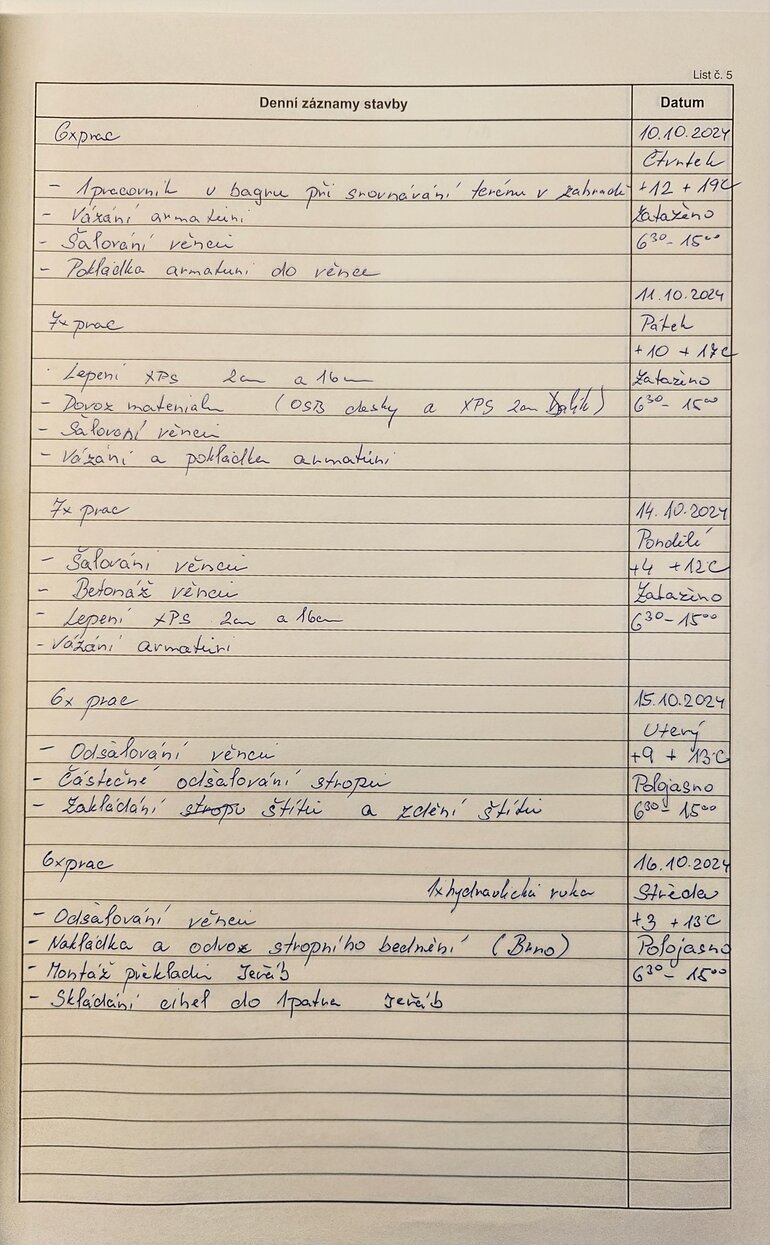 List č. 5
Denní záznamy stavby Datum
6xprac 10.10.2024
Čtvrtek
- 1pracovnik u bagru při srovnávání terénu v zahradě +12 +19C
- Vázání armatuři Zataženo
- Šalování věnců 6³⁰-15⁰⁰
- Pokládka armatuři do věnce
11.10.2024
7x prac Pátek
+10 +17C
- Lepení XPS 2cm a 16cm Zataženo
- Dovoz materialu (OSB desky a XPS 2cm) 6³⁰-15⁰⁰
- Šalování věnců
- Vázání a pokládka armatuři
7x prac 14.10.2024
Pondělí
- Šalování věnců +4 +12C
- Betonáž věnců Zataženo
- Lepení XPS 2cm a 16cm 6³⁰-15⁰⁰
- Vázání armatuři
6x prac 15.10.2024
Uterý
- Odšalování věnců +9 +13C
- Částečné odšalování stropu Polojasno
- Zakládání stropu štítů a zdění štítů 6³⁰-15⁰⁰
6xprac 16.10.2024
1xhydraulická ruka Středa
- Odšalování věnců +3 +13C
- Nakládka a odvoz stropního bednění (Brno) Polojasno
- Montáž překladů Jeřáb 6³⁰-15⁰⁰
- Skládání cihel do 1patra Jeřáb